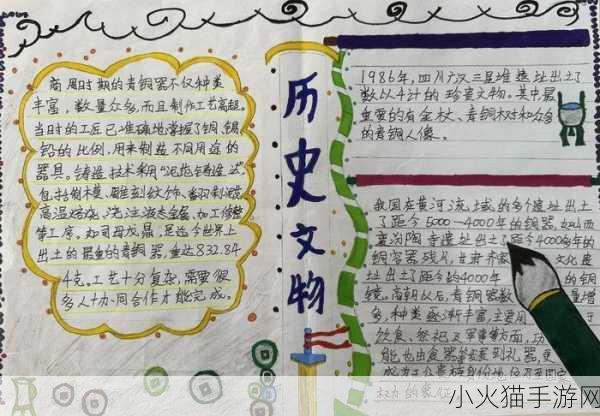 商周时期的青铜器不仅种类
丰富,数量众多,而且制作工艺高超。
当时的工匠已准确地掌握了铜、锡、
铅的比例,用来制造不同用途的
器具。铸造技术采用“泥范铸造法”
包括制模、雕刻纹饰、翻制泥范
高温焙烧、浇注液态合金、加工修整
等工序。如司母戊鼎,是迄今世界上
出土的最重的青铜器,重达832.84
千克。工艺十分复杂,需要很
多人协同合作才能完成。
历史文物
1986年,四川广汉三星堆遗址出土了
数以千计的珍贵文物。其中最
重要的有金杖、青铜神树和众多
的青铜人像。
我国在黄河流域的多个遗址出土
了距今5000—4000年的铜器,如山西
襄汾陶寺遗址出土了距今4000多年的
铜容器残片,甘肃齐家文化遗
址出土了距今约4000年的铜
镜。商朝以后,青铜器数量增
多,种类逐渐丰富,主要用
饮食、祭祀及军事等方面,功
能也由食器发展到礼器,更
成为王公贵族身份地位
权力的象征
小火猫手游网